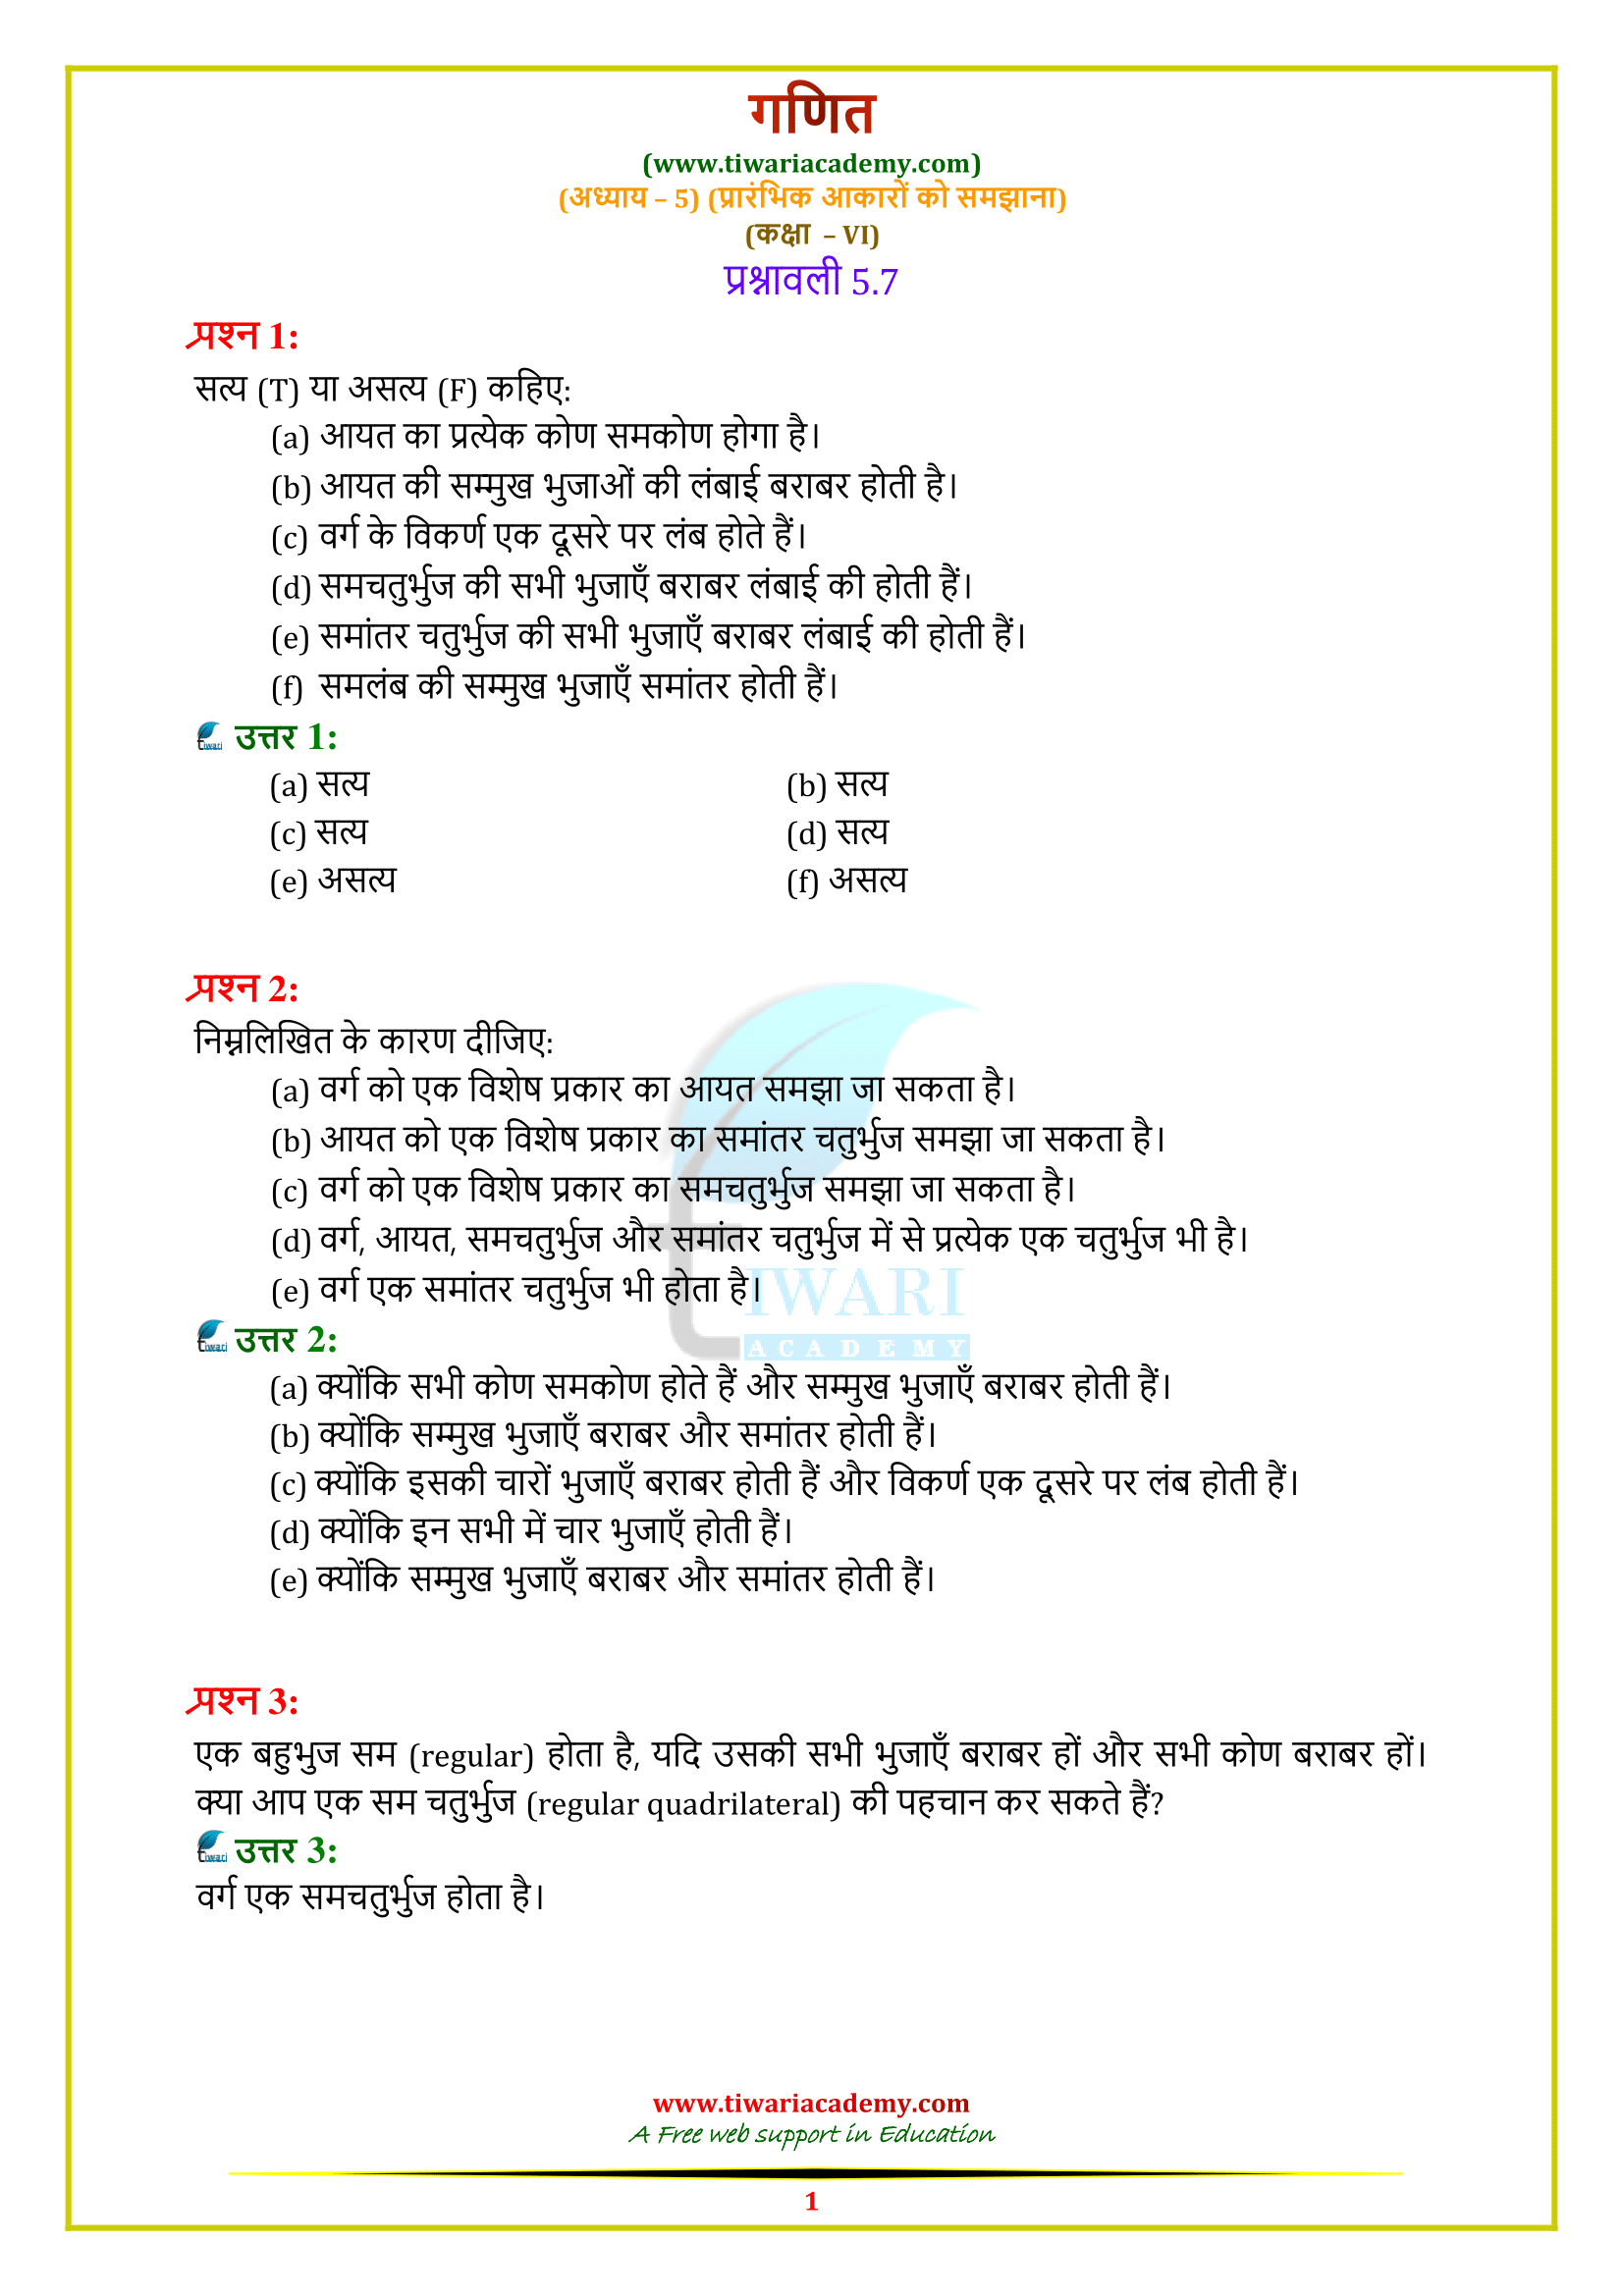 गणित
(www.tiwariacademy.com)
(अध्याय – 5) (प्रारंभिक आकारों को समझाना)
(कक्षा – VI)
प्रश्नावली 5.7
प्रश्न 1:
सत्य (T) या असत्य (F) कहिए:
(a) आयत का प्रत्येक कोण समकोण होगा है।
(b) आयत की सम्मुख भुजाओं की लंबाई बराबर होती है।
(c) वर्ग के विकर्ण एक दूसरे पर लंब होते हैं।
(d) समचतुर्भुज की सभी भुजाएँ बराबर लंबाई की होती हैं।
(e) समांतर चतुर्भुज की सभी भुजाएँ बराबर लंबाई की होती हैं।
(f) समलंब की सम्मुख भुजाएँ समांतर होती हैं।
tiwari उत्तर 1:
(a) सत्य (b) सत्य
(c) सत्य (d) सत्य
(e) असत्य (f) असत्य
प्रश्न 2:
निम्नलिखित के कारण दीजिए:
(a) वर्ग को एक विशेष प्रकार का आयत समझा जा सकता है।
(b) आयत को एक विशेष प्रकार का समांतर चतुर्भुज समझा जा सकता है।
(c) वर्ग को एक विशेष प्रकार का समचतुर्भुज समझा जा सकता है।
(d) वर्ग, आयत, समचतुर्भुज और समांतर चतुर्भुज में से प्रत्येक एक चतुर्भुज भी है।
(e) वर्ग एक समांतर चतुर्भुज भी होता है।
tIWARI
ACADEMY
tiwari उत्तर 2:
(a) क्योंकि सभी कोण समकोण होते हैं और सम्मुख भुजाएँ बराबर होती हैं।
(b) क्योंकि सम्मुख भुजाएँ बराबर और समांतर होती हैं।
(c) क्योंकि इसकी चारों भुजाएँ बराबर होती हैं और विकर्ण एक दूसरे पर लंब होती हैं।
(d) क्योंकि इन सभी में चार भुजाएँ होती हैं।
(e) क्योंकि सम्मुख भुजाएँ बराबर और समांतर होती हैं।
प्रश्न 3:
एक बहुभुज सम (regular) होता है, यदि उसकी सभी भुजाएँ बराबर हों और सभी कोण बराबर हों।
क्या आप एक सम चतुर्भुज (regular quadrilateral) की पहचान कर सकते हैं?
tiwari उत्तर 3:
वर्ग एक समचतुर्भुज होता है।
www.tiwariacademy.com
A Free web support in Education
1